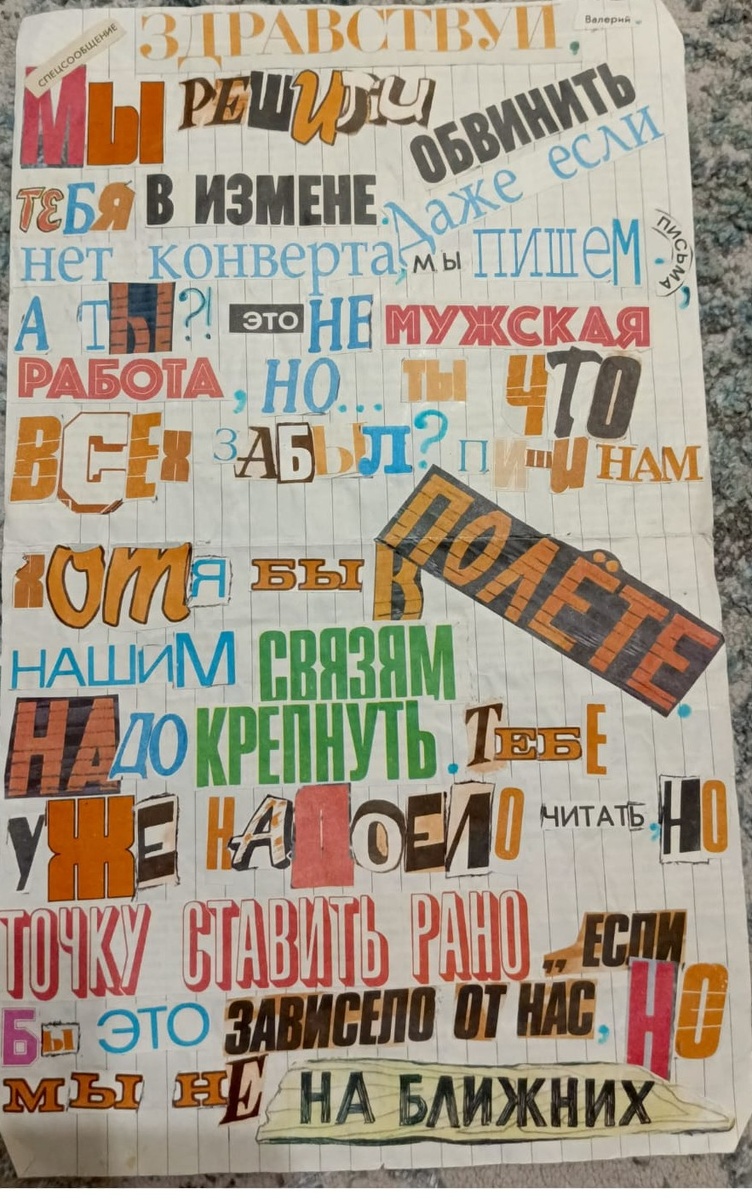 СПЕЦСООБЩЕНИЕ
ЗДРАВСТВУЙ, Валерий.
МЫ РЕШИЛИ ОБВИНИТЬ
ТЕБЯ В ИЗМЕНЕ. Даже если
нет конверта, мы пишем ПИСЬМА.
А ТЫ?! ЭТО НЕ МУЖСКАЯ
РАБОТА, НО... ТЫ ЧТО
ВСЕХ ЗАБЫЛ? ПИШИ НАМ
ХОТЯ БЫ В ПОЛЁТЕ.
НАШИМ СВЯЗЯМ
НАДО КРЕПНУТЬ. ТЕБЕ
УЖЕ НАДОЕЛО ЧИТАТЬ, НО
ТОЧКУ СТАВИТЬ РАНО „ЕСЛИ
БЫ ЭТО ЗАВИСЕЛО ОТ НАС, НО
МЫ НЕ НА БЛИЖНИХ